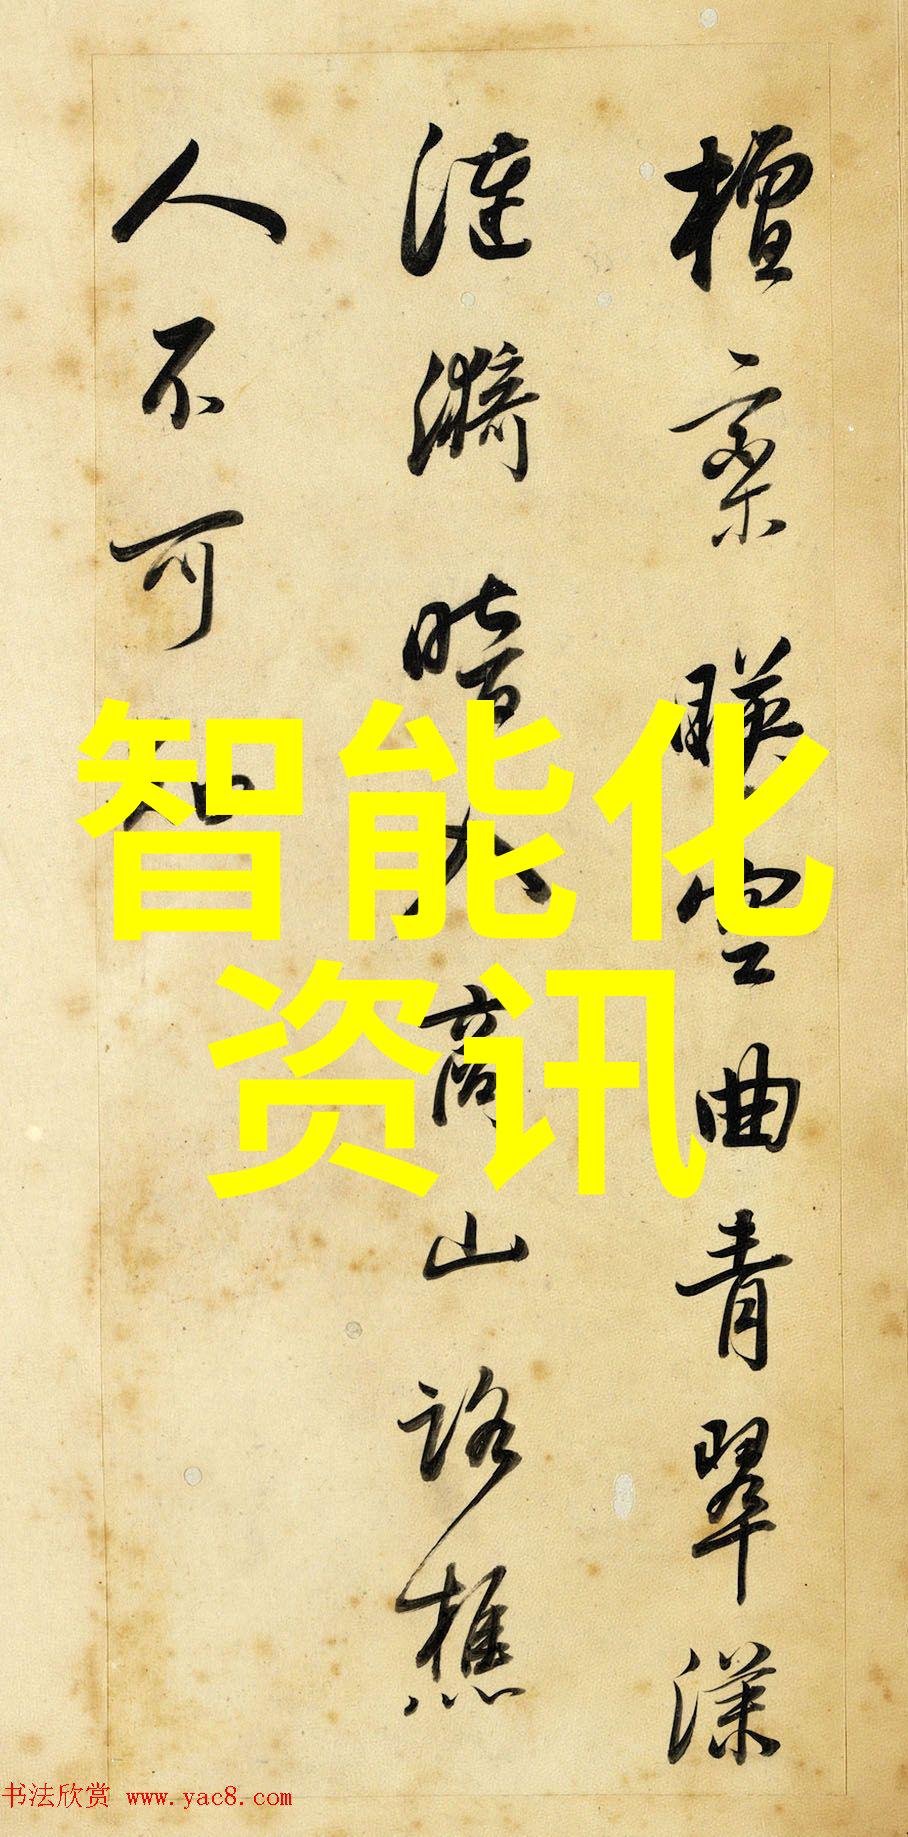 檀栾暎空曲青翠漾
漣漪暗入商山路樵
人不可知
智能化
资讯
书法欣赏 www.yac8.com